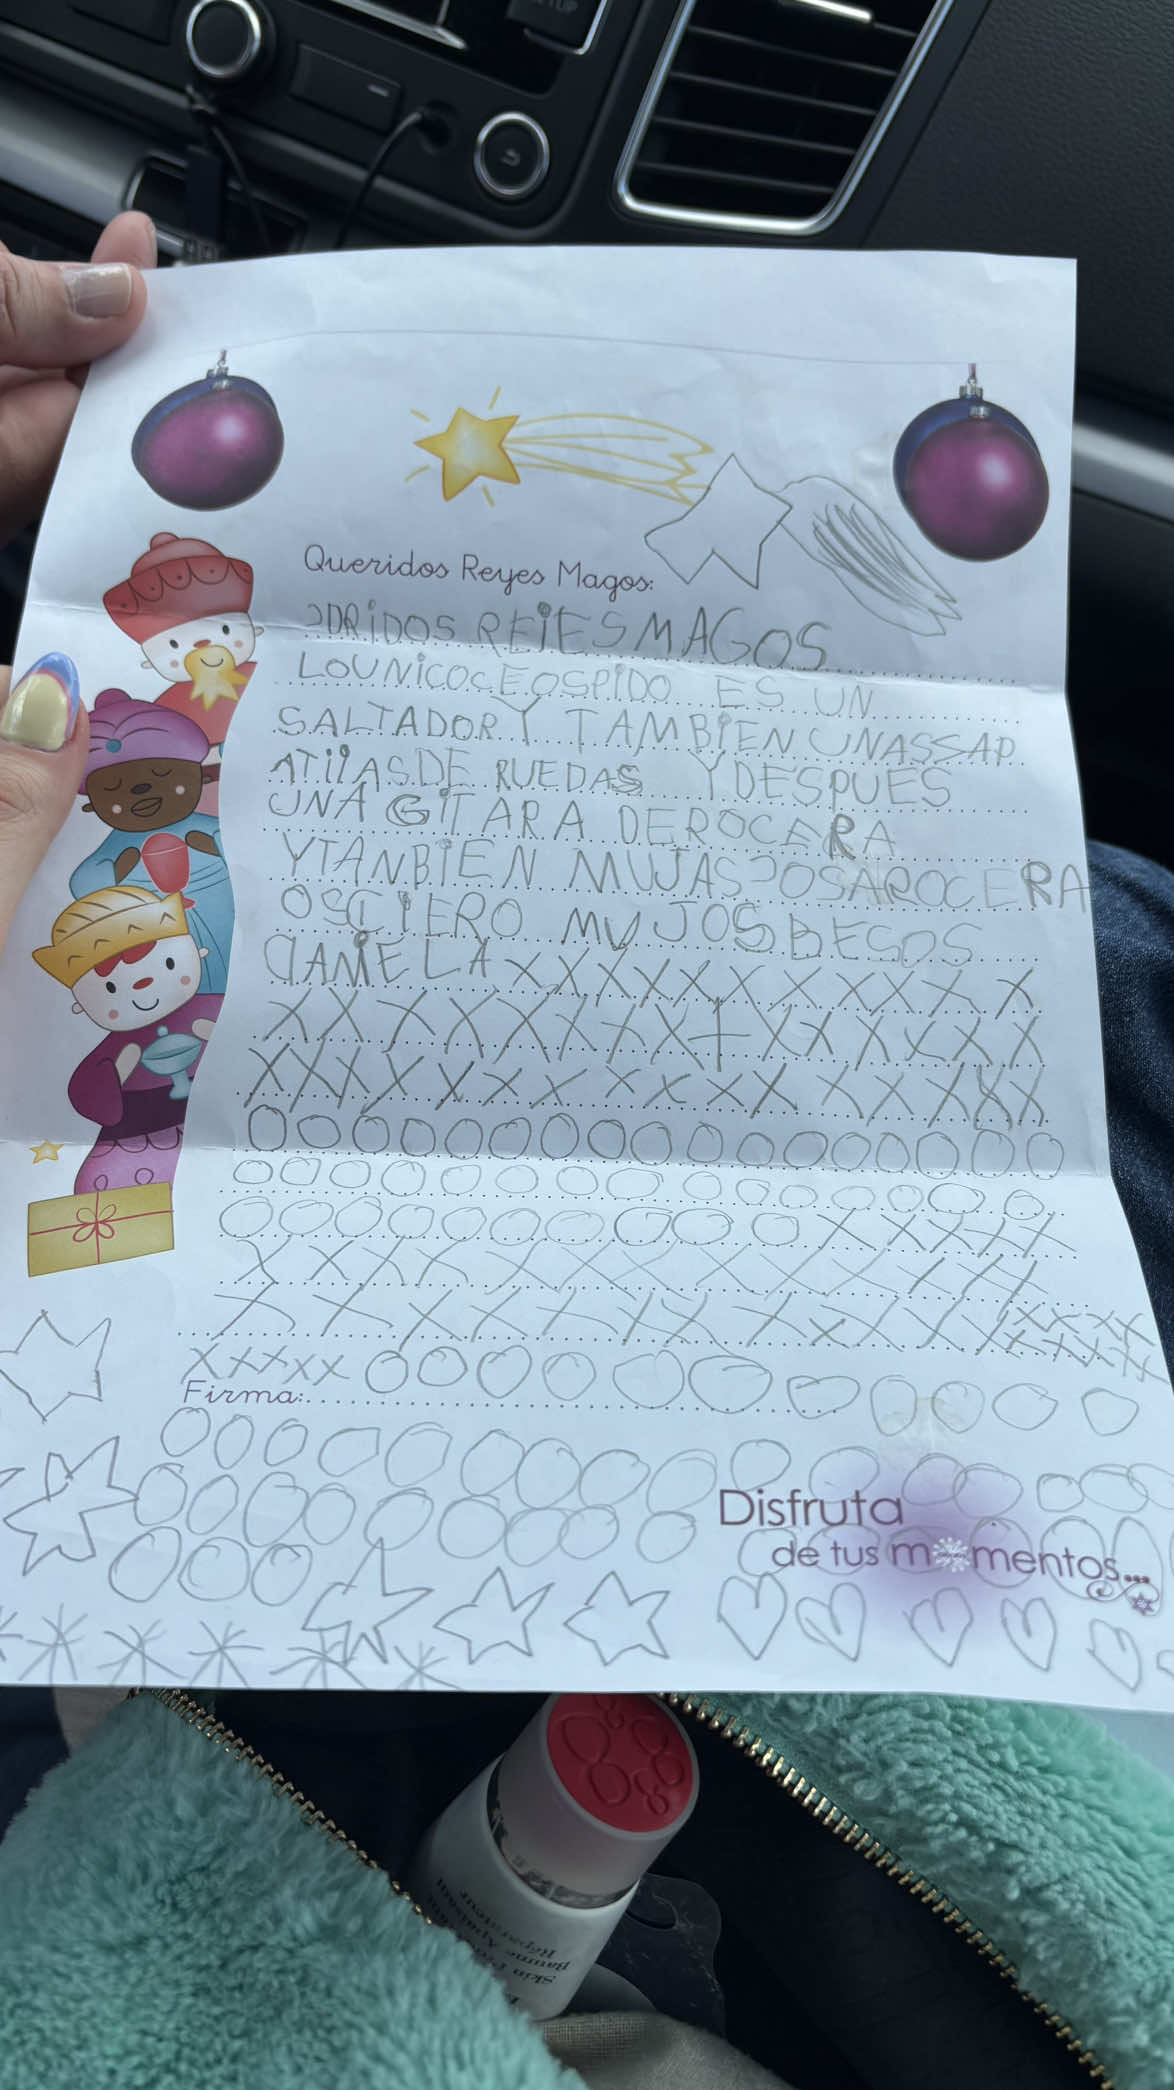 SETUP
Queridos Reyes Magos:
ƆDRiDOS REiES MAGOS
LOUNiCOCEOSPiDO ES UN
SALTADOR Y TAMBiEN UNASSAP
ATiiAS DE RUEDAS Y DESPUES
UNA GiTARA DEROCERA
Y TANBiEN MUJAS ƆOSAROCERA
OSCiERO MUJOS BESOS
DANiELA X X X X X X X X X X X X
X X X X X X X X X X X X X X X X
X X X X X X X X X X X X X X X X X
O O O O O O O O O O O O O O O O
O O O O O O O O O O O O O O O
O O O O O O O O O O X X X X X
X X X X X X X X X X X X
X X X X X X X X X X X X X X X X
X X X X X O O O O O O O O O O
Firma:
Disfruta
de tus momentos...
Baume Apaisant
Réparateur